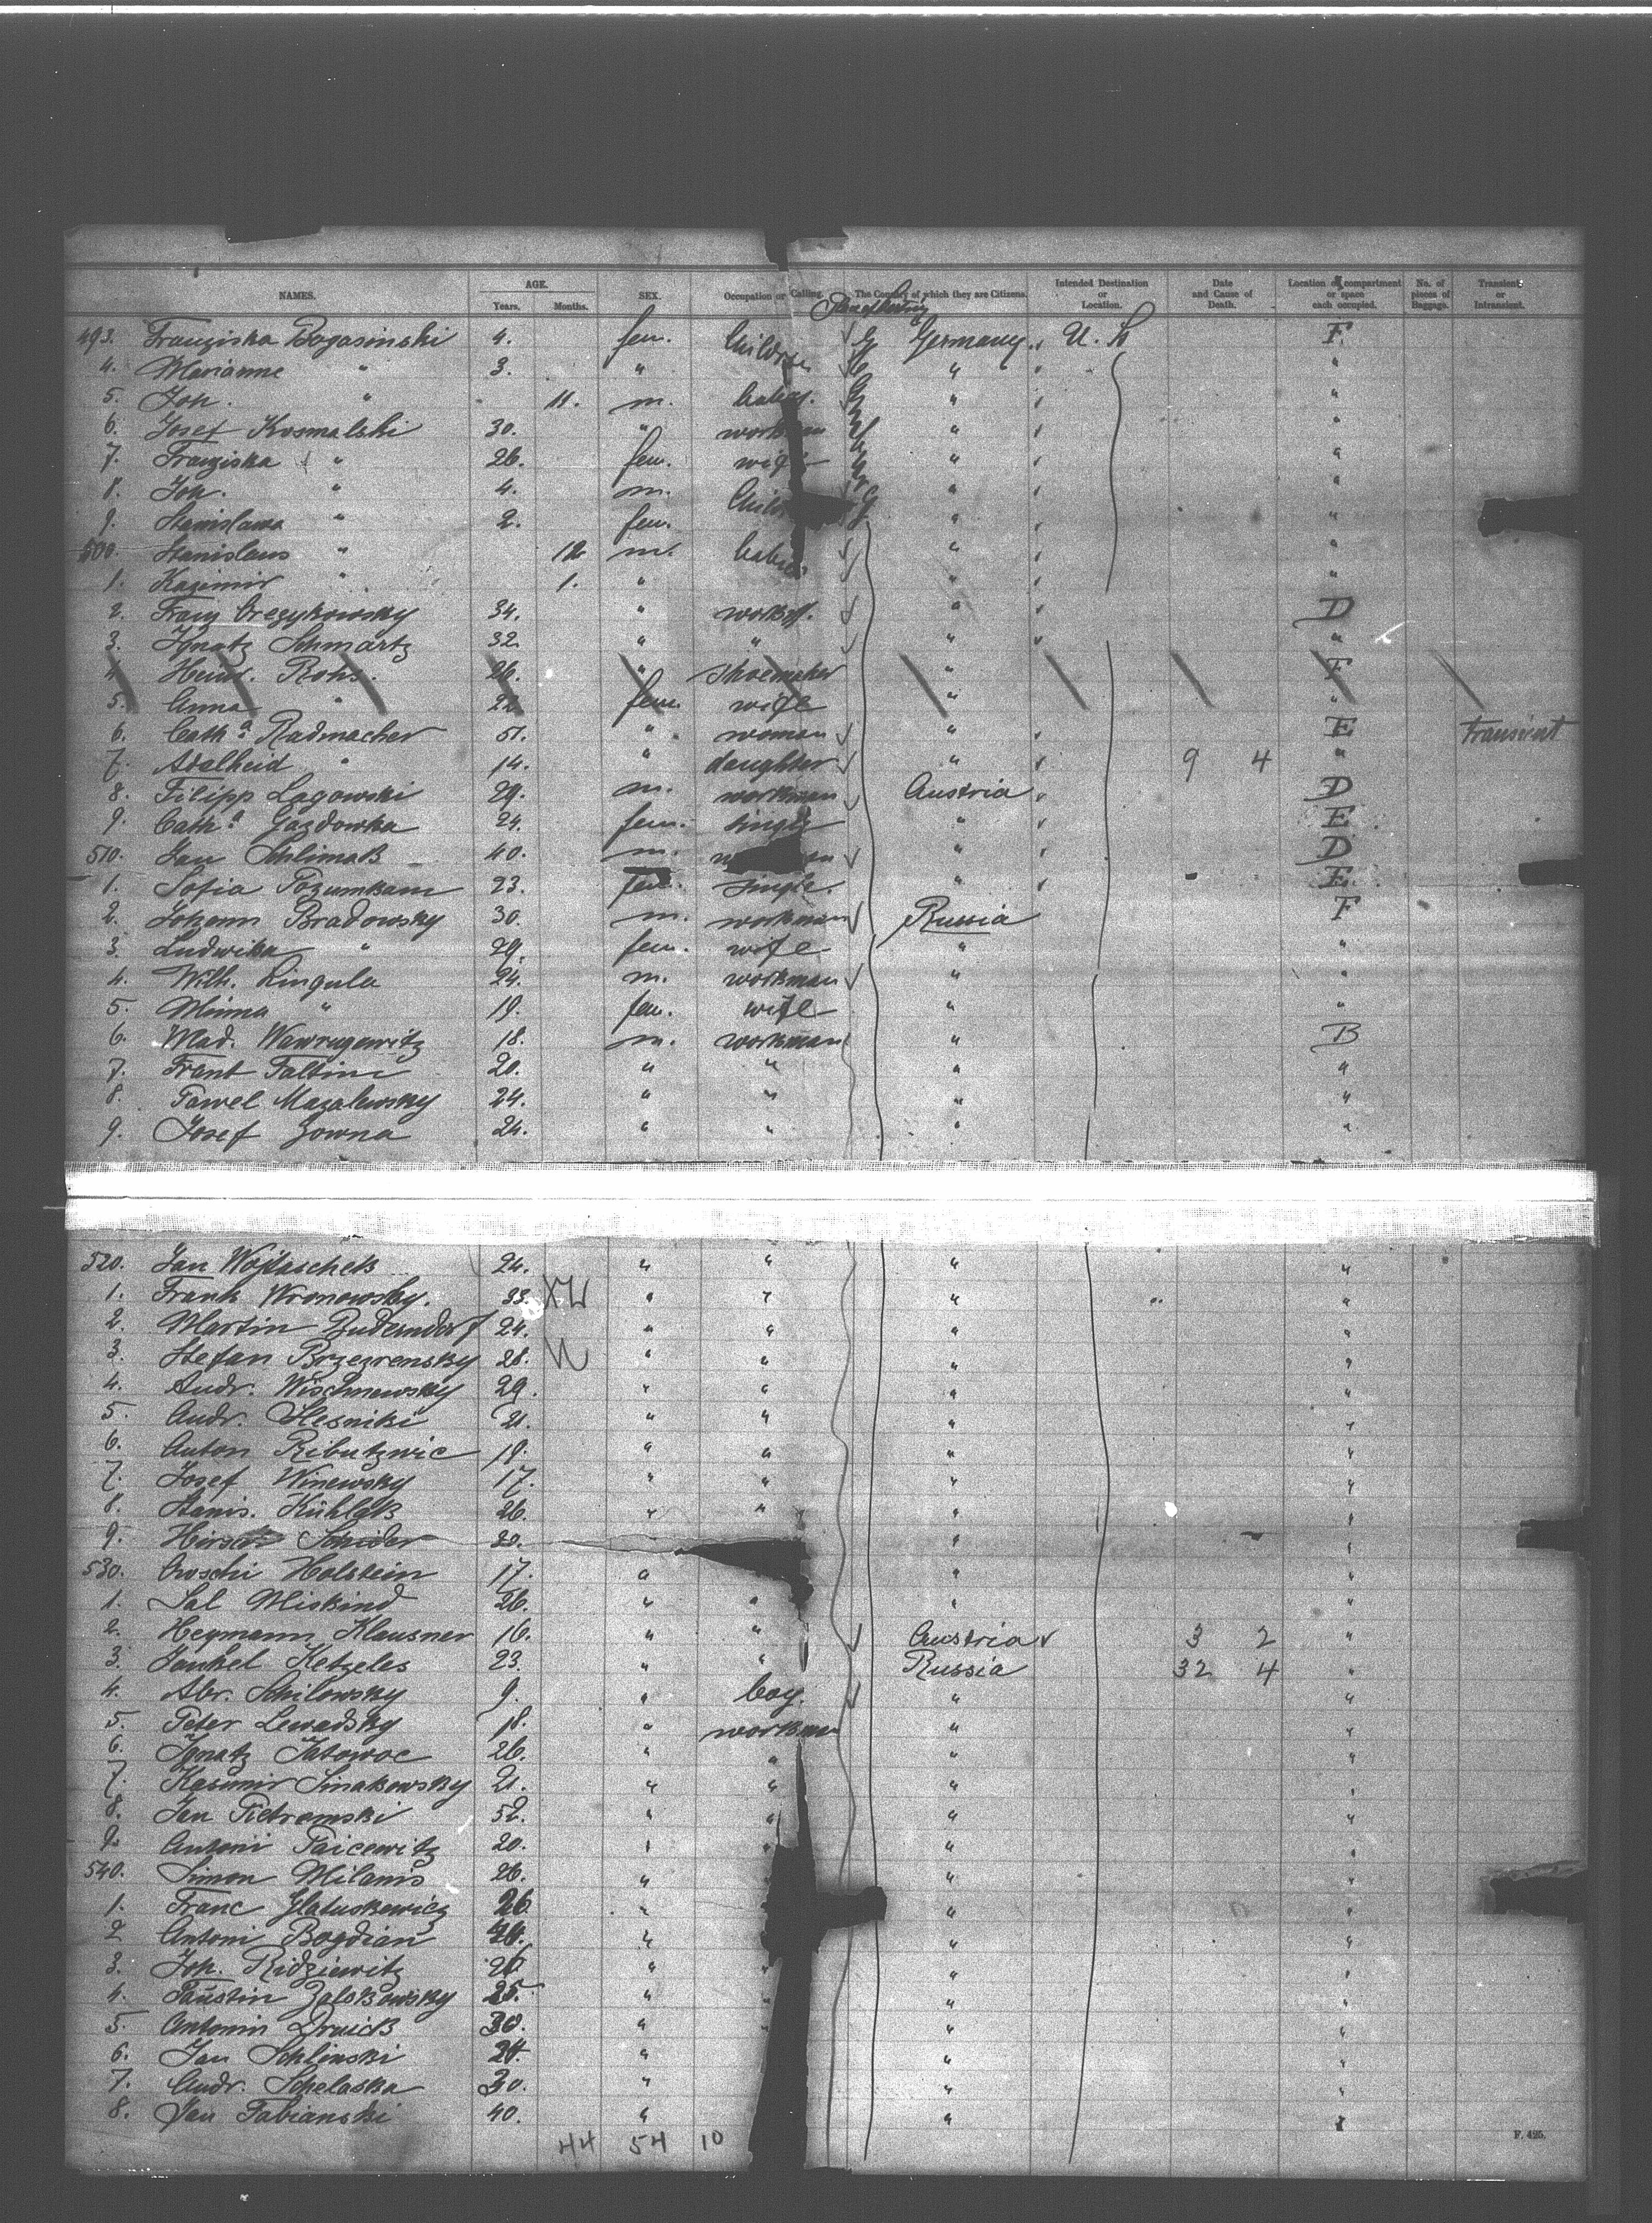 NAMES. AGE. Years. Months. SEX. Occupation or Calling. The Country of which they are Citizens. Intended Destination or Location. Date and Cause of Death. Location of compartment or space each occupied. No. of pieces of Baggage. Transient or Intransient.
493. Franziska Bogasinski 4. fem. Children G Germany. U. S. F.
4. Marianne " 3. " " "
5. Joh. " 11. m. baby. " "
6. Josef Kosmalski 30. " workman " "
7. Franziska " 26. fem. wife " "
8. Joh. " 4. m. " "
9. Stanislawa " 2. fem. " "
500. Stanislaus " 12 m. babies " "
1. Kazimir " 1. " " "
2. Franz 34. " " D
3. Ignatz Schmartz 32. " " " "
4. Heinr. Rohs. 26. " shoemaker " F
5. Anna " 22 fem. wife " "
6. Cath.a Radmacher 51. " woman " E transient
7. Adalheid " 14. " daughter " 9 4 "
8. Filipp Lagowski 29. m. workman Austria D
9. Cath.a Gazdowka 24. fem. single " E
510. Jan Schlimak 40. m. " D
1. Sofia 23. fem. single. " E.
2. Johann Bradowsky 30. m. workman Russia F
3. Ludwika " 29. fem. wife " "
4. Wilh. Lingula 24. m. workman " "
5. Minna " 19. fem. wife " "
6. Mad. Wawrugewitz 18. m. workman " B
7. Frant Faltini 20. " " " "
8. Pawel Mazalewsky 24. " " " "
9. Josef Zowna 24. " " " "
520. Jan Wojtaschek 24. " " " "
1. Frank Wronowsky. 33. " " " "
2. Martin Buderndorf 24. " " " "
3. Stefan Brzezrensky 28. " " " "
4. Andr. Wischnewsky 29. " " " "
5. Andr. Slesniki 21. " " " "
6. Anton Ributzwic 19. " " " "
7. Josef Winewsky 17. " " " "
8. Stanis. Kühlak 26. " " " "
9. Hirsch Schider 20. " "
530. Holstein 17. " " "
1. Sal Miskind 26. " " " "
2. Heymann Klausner 16. " " Austria 3 2 "
3. Jankel Ketzeles 23. " " Russia 32 4 "
4. Abr. Schilowsky 9. " boy. " "
5. Peter Lewadsky 18. " workman " "
6. Ignatz Jatowoc 26. " " " "
7. Kasimir Sinakowsky 21. " " " "
8. Jan Pietremski 52. " " " "
9. Antonii Paicewitz 20. " " " "
540. Simon Milanis 26. " " "
1. Franc Glatuskewicz 26 " " "
2 Antoni Bogdian " " "
3. Joh. Ridziewitz 26 " " "
4. Faustin Zalskowsky 25. " " "
5. Antonin Druick 30. " " "
6. Jan Schlinski 24. " " "
7. Andr. Schelaska 30. " " "
8. Jan Fabianski 40. " " "
44 54 10
F. 425.